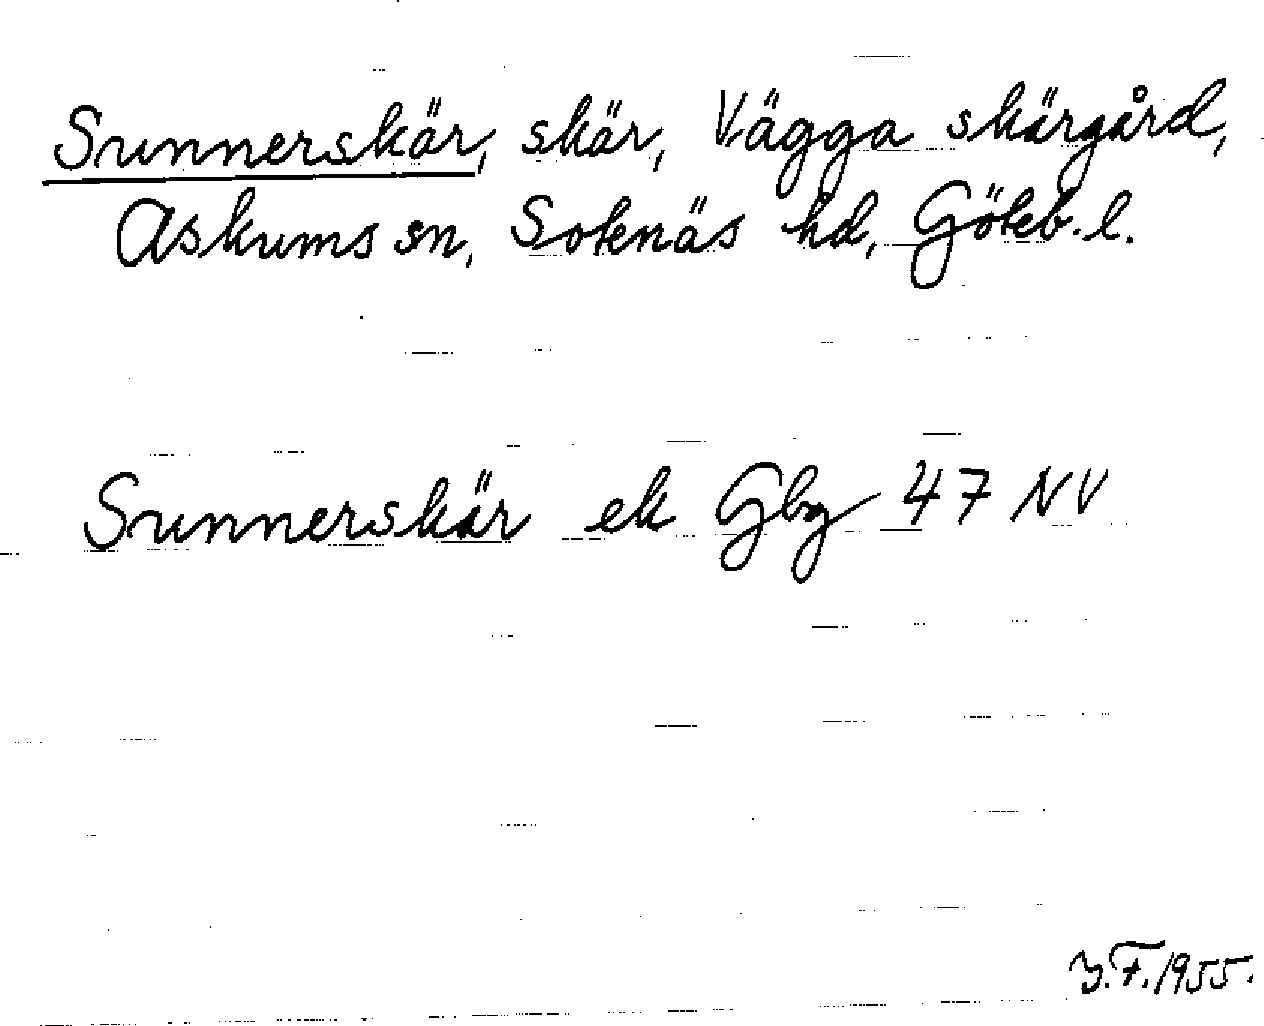 Sunnerskär, skär, Vägga skärgård,
Askums sn, Sotenäs hd, Göteb. l.
Sunnerskär ek Gbg 47 NV
Y.F. 1955.